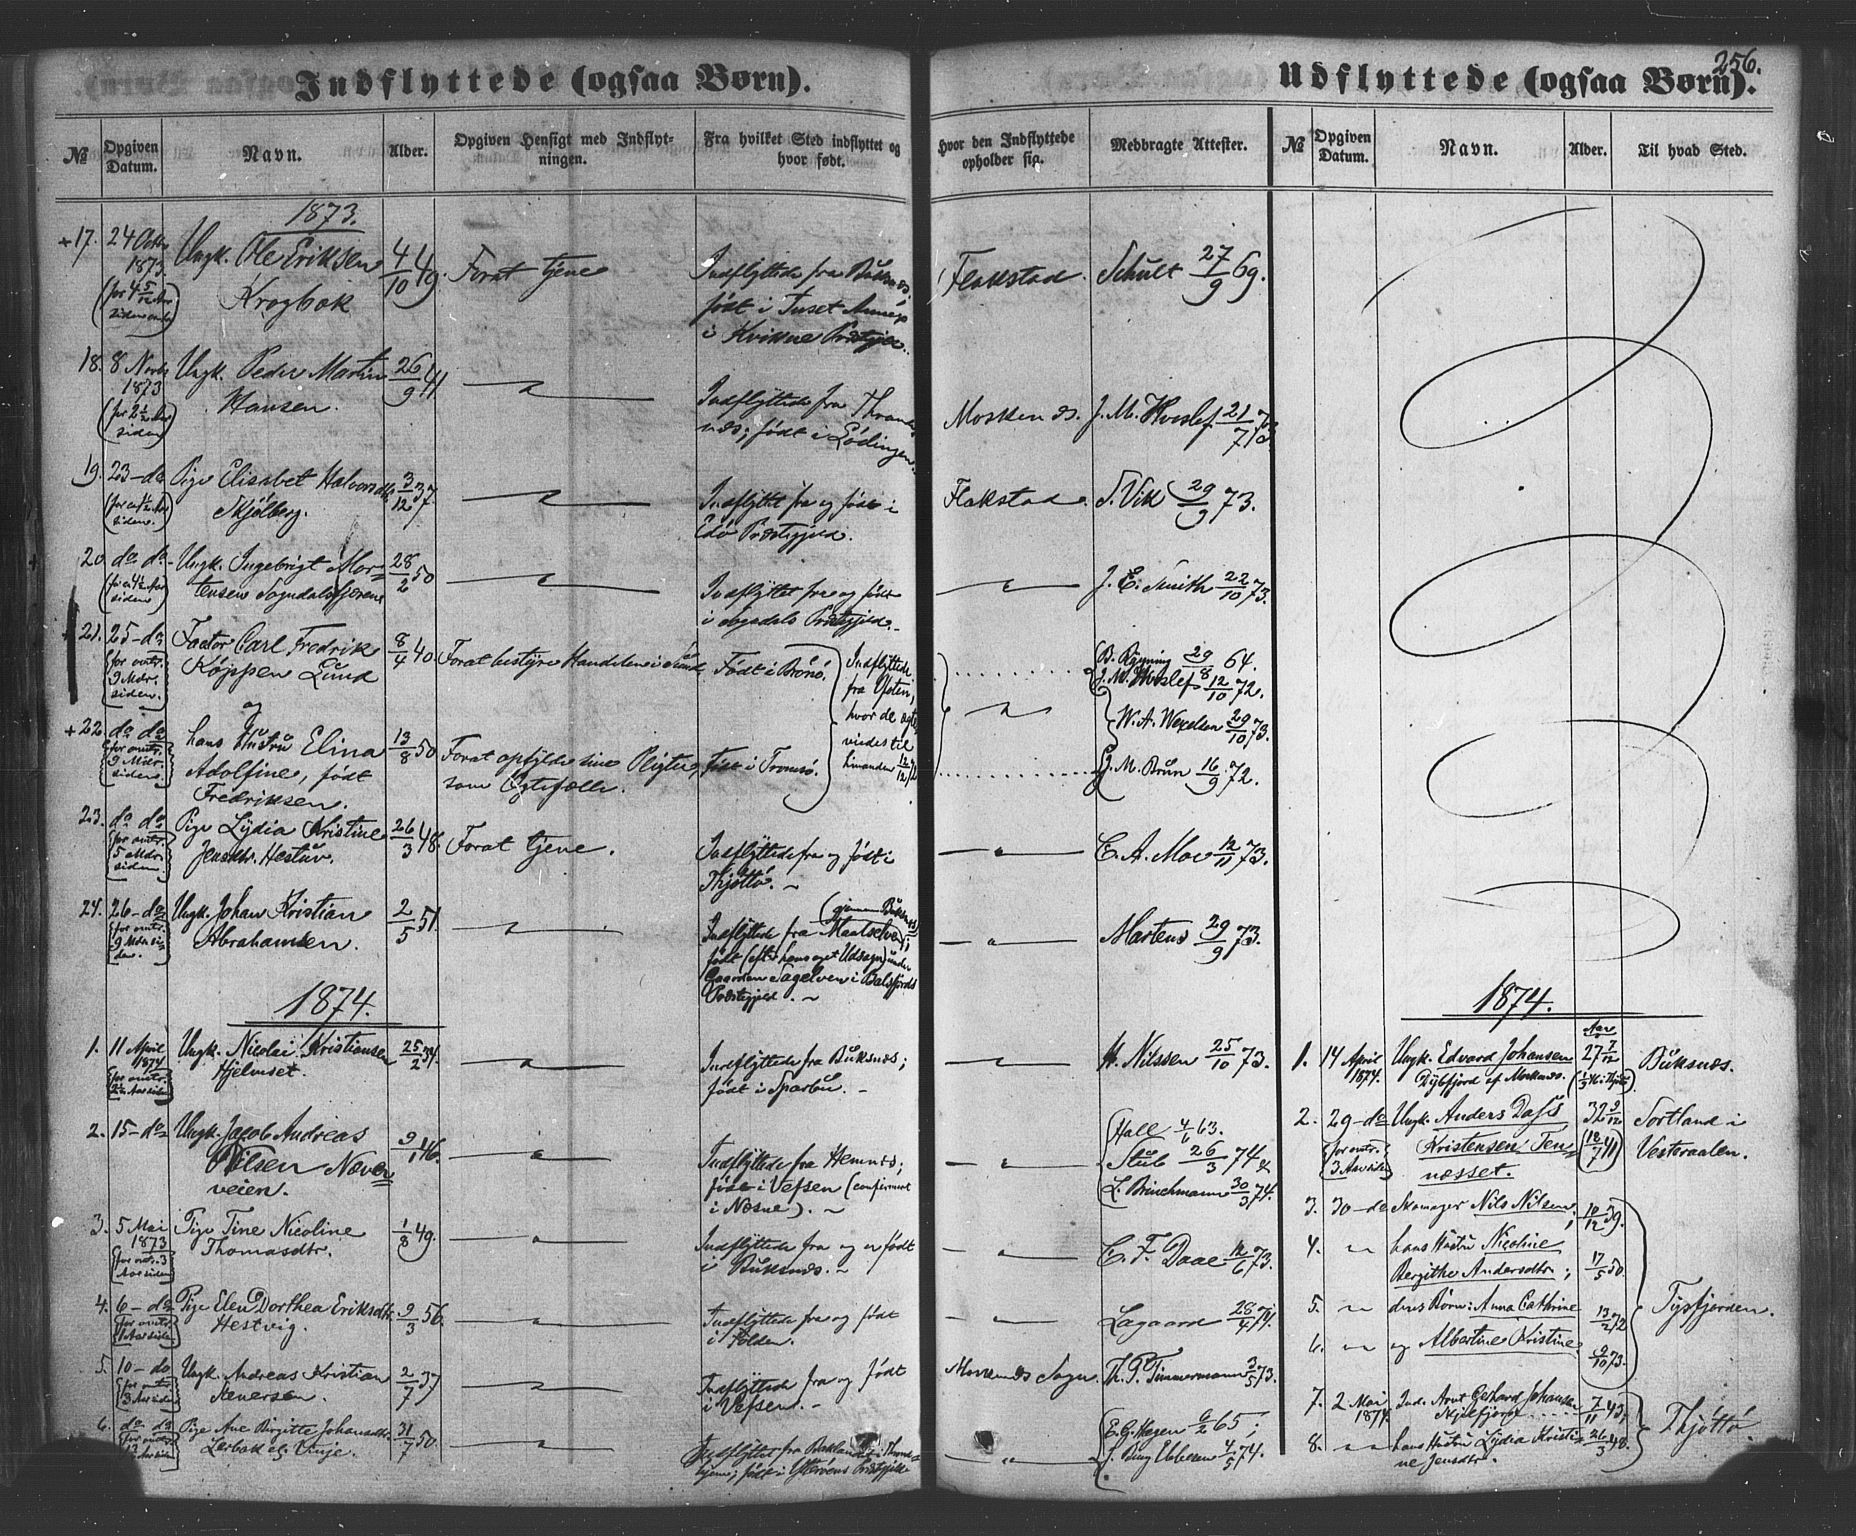 256.
Indflyttede (ogsaa Børn).
№ Opgiven Datum. Navn. Alder. Opgiven Hensigt med Indflytningen. Fra hvilket Sted indflyttet og hvor født.
1873.
+17. 24 Octbr 1873 Ungk. Ole Eriksen 4/10 49. Forat tjene Indflyttede fra Buksnæs,
(for 4 5/12 Aar siden Krogbak født i Tuset Annex
i Kvikne Præstegjeld.
18. 8 Novbr 1873 Ungk. Peder Martin 26/9 41 Indflyttede fra Throndenæs;
(for 2 1/2 Aar siden) Hansen. født i Lødingen.
19. 23 - do Pige Elisabet Halvorsdtr. 3/12 37. Indflyttet fra og født i
siden.) Skjølberg. Edø Præstegjeld.
20. do do. Ungk. Ingebrigt Mor- 28/2 50 Indflyttet fra og født
siden) tensen Sogndalsfjæren i Sogndals Præstegjeld.
+21. 25 - do Factor Carl Fredrik 8/4 40. Forat bestyre Handelen i Sund Født i Brønø
(for omtr. 9 Mdr. siden.) Køppen Lund
og
+22. do do hans Hustru Elina 13/8 50 Forat opfylde sine Pligter født i Tromsø.
(for omtr. 9 Mdr. siden) Adolfine, født som Egtefælle.
Fredriksen.
Indflyttede fra Ofoten, hvor de egtevviedes til hinanden 12/12 72
23. do do Pige Lydia Kristine 26/3 48. Forat tjene. Indflyttede fra og født i
(for omtr. 5 Mdr. siden) Jensdtr. Hestun. Thjøttø.
24. 26 - do Ungk. Johan Kristian 2/5 51. Indflyttede fra Maalselven (gjennem Buksnæs);
(for omtr. 9 Mdr siden.) Abrahamsen. født (efter hans eget Udsagn) under
Gaarden Sagelven i Balsfjords
Præstegjeld.
1874.
1. 11 April 1874 Ungk. Nicolai Kristiansen 25/2 34. Indflyttede fra Buksnæs;
Hjelmset. født i Sparbu.
2. 15 - do Ungk. Jacob Andreas 9/1 46. Indflyttede fra Hemnæs;
Nilsen Næver- født i Vefsen (confirmert
veien. i Næsne).
3. 5 Mai 1873 Pige Tine Nicoline 1/8 49. Indflyttede fra og er født
(for omtr. 3 Aar siden) Thomasdtr. i Buksnæs.
4. 6 - do Pige Elen Dorthea Eriksdtr. 9/3 56. Indflyttede fra og født
(for omtr. 1 Aar siden) Hestvig. i Folden.
5. 10 - do Ungk. Andreas Kristian 2/7 37 Indflyttede fra og født
(for omtr. 3 Aar siden) i Vefsen.
6. do do Pige Ane Birgitte Johansdtr. 31/7 50. Indflyttet fra Baklandet i Thrond-
hjem; født i Ytterøens Præstegjeld
Udflyttede (ogsaa Børn).
Hvor den Indflyttede opholder sig. Medbragte Attester. № Opgiven Datum. Navn. Alder. Til hvad Sted.
Flakstad. Schult 27/9 69.
Moskenæs. J. M. Hvoslef 21/7 73.
Flakstad. S. Vik 29/9 73.
J. E. Smith 22/10 73.
B. Rynning 29/8 64.
J. M. Hvoslef 12/10 72.
W. A. Wexelsen 29/10 73.
J. M. Brun 16/9 72.
C. A. Moe 12/11 73.
Martens 29/9 73.
1874.
H. Nilssen 25/10 73.
Hall 4/6 63.
Stub 26/3 74 &
L. Brinchmann 30/3 74.
C. F. Daae 12/6 73.
Lagaard 28/4 74.
Moskenæs Sogn. Th. P. Timmermann 3/5 73.
E. G. Hagen 9/2 65;
J. Bing Ebbesen 4/5 74.
Aar
1. 14 April 1874. Ungk. Edvard Johansen 27 7/12 Buksnæs.
Dybfjord af Mosknæs.
2. 29 - do Ungk. Anders Dass 32 9/12 Sortland i
(for omtr. 3 Aar siden) Kristensen Ten- (12/7 41) Vesteraalen.
næsset.
3. 30 - do Skomager Nils Nilsen, 10/12 39.
4. " hans Hustru Nicoline
Bergithe Andersdtr; 17/5 50.
5. " deres Børn: Anna Cathrine 13/2 72 Tysfjorden.
6. " og Albertine Kristine 9/10 73.
7. 2 Mai 1874. Ind. Arnt Gerhard Johansen 7/11 43,
Skjelfjord Thjøttø.
8. " hans Hustru Lydia Kristi- 26/3 48.
ne Jensdtr.